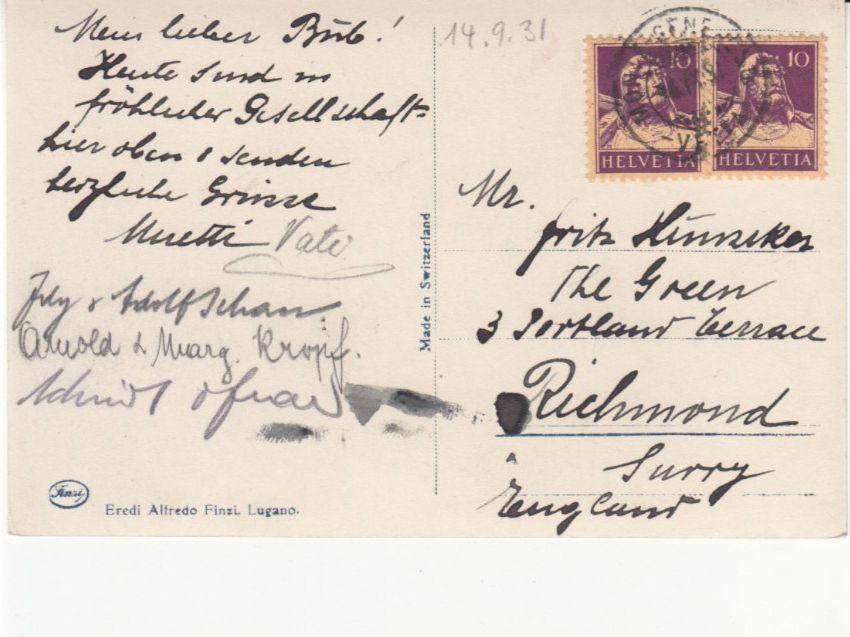 Mein lieber Bub!
Heute sind in
fröhlicher Gesellschaft
hier oben & senden
herzliche Grüsse
Muetti Vati
& Adolf
Arnold & Marg. Kropf.
14.9.31
10 10
HELVETIA HELVETIA
Mr.
Fritz Hunziker
The Green
3 Portland Terrace
Richmond
Surry
England
Made in Switzerland
Finzi
Eredi Alfredo Finzi, Lugano.